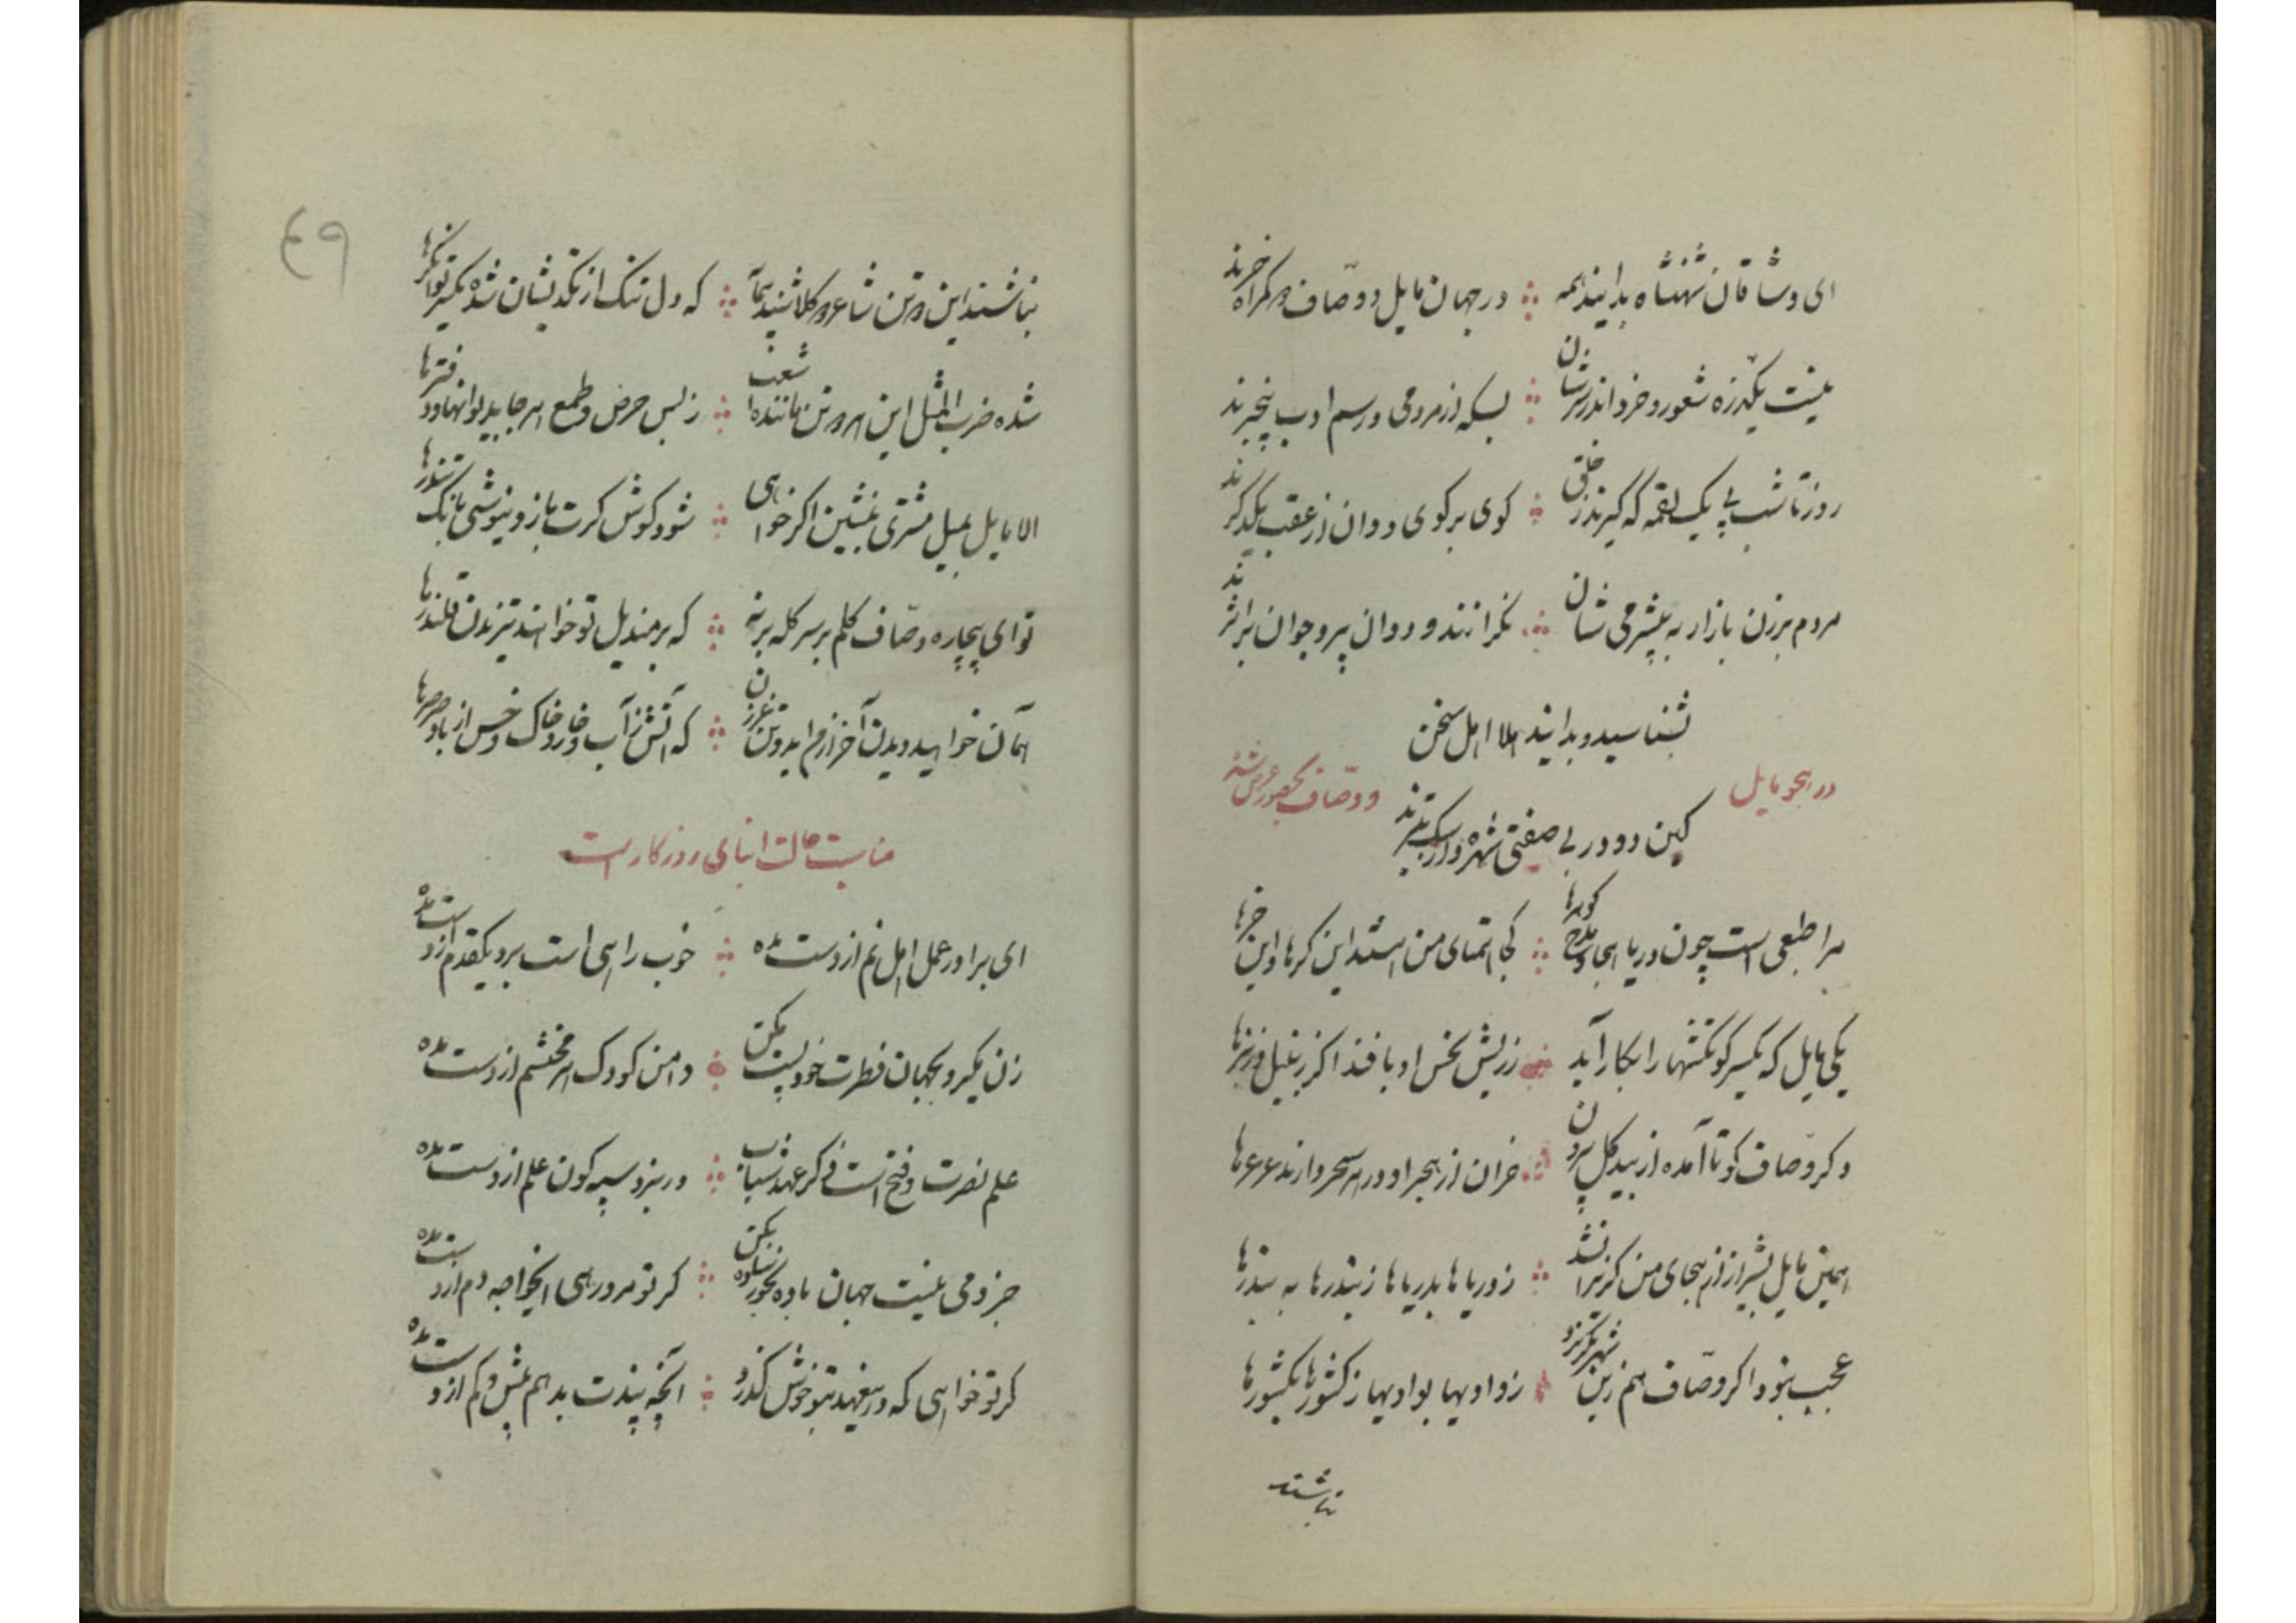 ای وشاقان شهنشاه بدانید همه در جهان مایل و وصاف دو کمراه خرند
نیست یکذره شعور و خرد اندر سرشان بسکه از مردمی و رسم ادب بیخبرند
روز تا شب پی یک لقمه که گیرند ز خلق کوی بر کوی دوان از عقب یکدگرند
مردم برزن بازار به بیشرمی شان نگرانند و دوان پیر و جوان بر اثرند
بشناسید و بدانید الا اهل سخن
در هجو مایل و وصاف بحضور عرض شد
کین دو در بی صفتی شهره
مرا طبعی است چون دریا هجا و مدح گوهرها کجا همتای من استند این کرها و این خرها
یکی مایل که یکسر گونکشتها را بکار آید ز ریش نحس او بافند اگر زنبیل
دگر وصاف کوتا آمده از بیدکل بیرون خران از هجر او در هر سحر دارند عرعرها
همین مایل بشیراز از هجای من گریزا نشد ز دریاها بدریاها ز بندرها به بندرها
عجب نبود اگر وصاف هم زین شهر بگریزد ز وادیها بوادیها ز کشورها بکشورها
نباشند
٤٩
نباشند این دو تن شاعر که دل تنک از تکدیشان شده یکسر توانگرها
شده ضرب المثل این هر دو تن مانند اشعب ز بس حرص و طمع هر جا بدیوانها و دفترها
الا مایل بمیل مشتری بنشین اگر خواهی شود کوش کرت باز و نیوشی بانک تندرها
تو ای بیچاره وصاف کلم بر سر کله بر نه که بر مندیل تو خوانند تیزیدن قلندرها
همان خواهید دیدن آخر از من که آتش ز آب و خار و خاک و خس از باد صرصرها
مناسبت حالت ابنای روزکار است
ای برادر عمل اهل نعم از دست مده خوب راهی است برو یکقدم از دست مده
زن نگیر و بجهان فطرت خود پست مکن دامن کودک از دست مده
علم نصرت و فتح است ذکر عهد شباب در نبرد سپه کون علم از دست مده
جز دمی نیست جهان باده بخور ساده بکن گر تو مرد رهی ایخواجه دم از دست مده
گر تو خواهی که بتو خوش گذرد آنچه پندت بدهم بیش و کم از دست مده